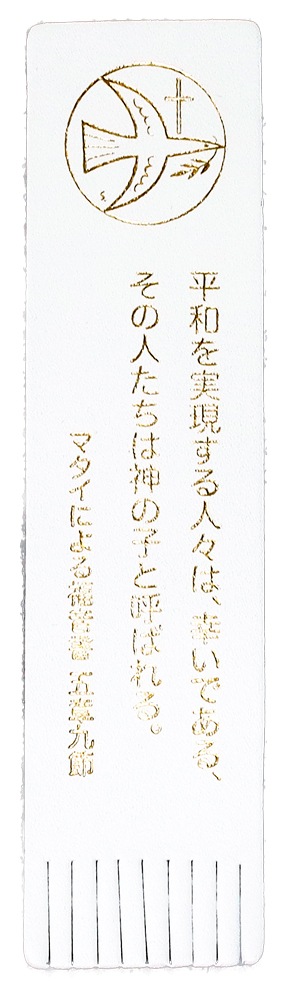 平和を実現する人々は、幸いである、
その人たちは神の子と呼ばれる。
マタイによる福音書 五章九節